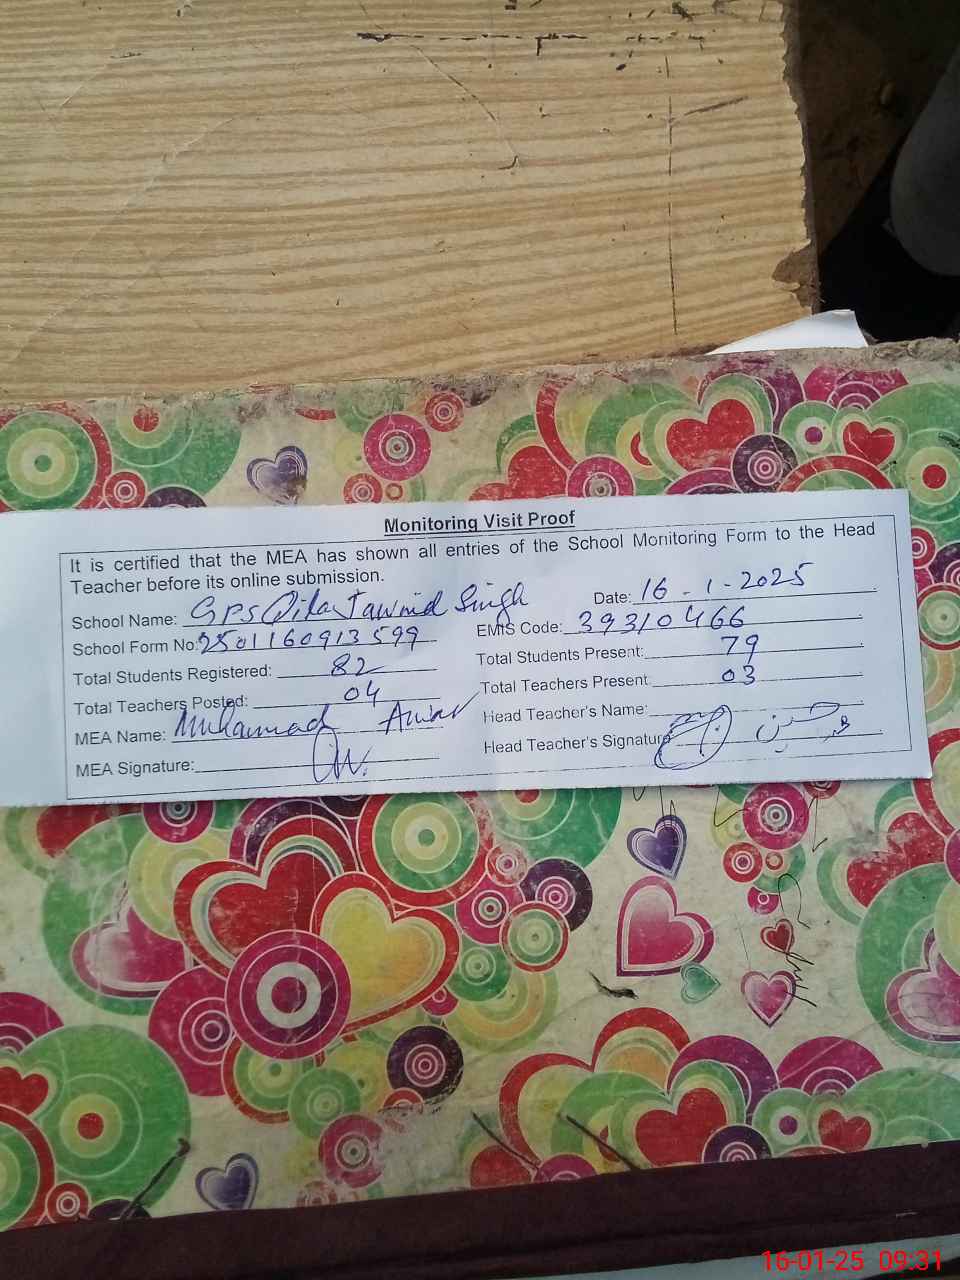 Monitoring Visit Proof
It is certified that the MEA has shown all entries of the School Monitoring Form to the Head
Teacher before its online submission.
School Name: GPS Qila Jawnd Singh Date: 16-1-2025
School Form No: 2501160913599 EMIS Code: 39310466
Total Students Registered: 82 Total Students Present: 79
Total Teachers Posted: 04 Total Teachers Present: 03
MEA Name: Muhammad Head Teacher's Name:
MEA Signature: Head Teacher's Signature
16-01-25 09:31